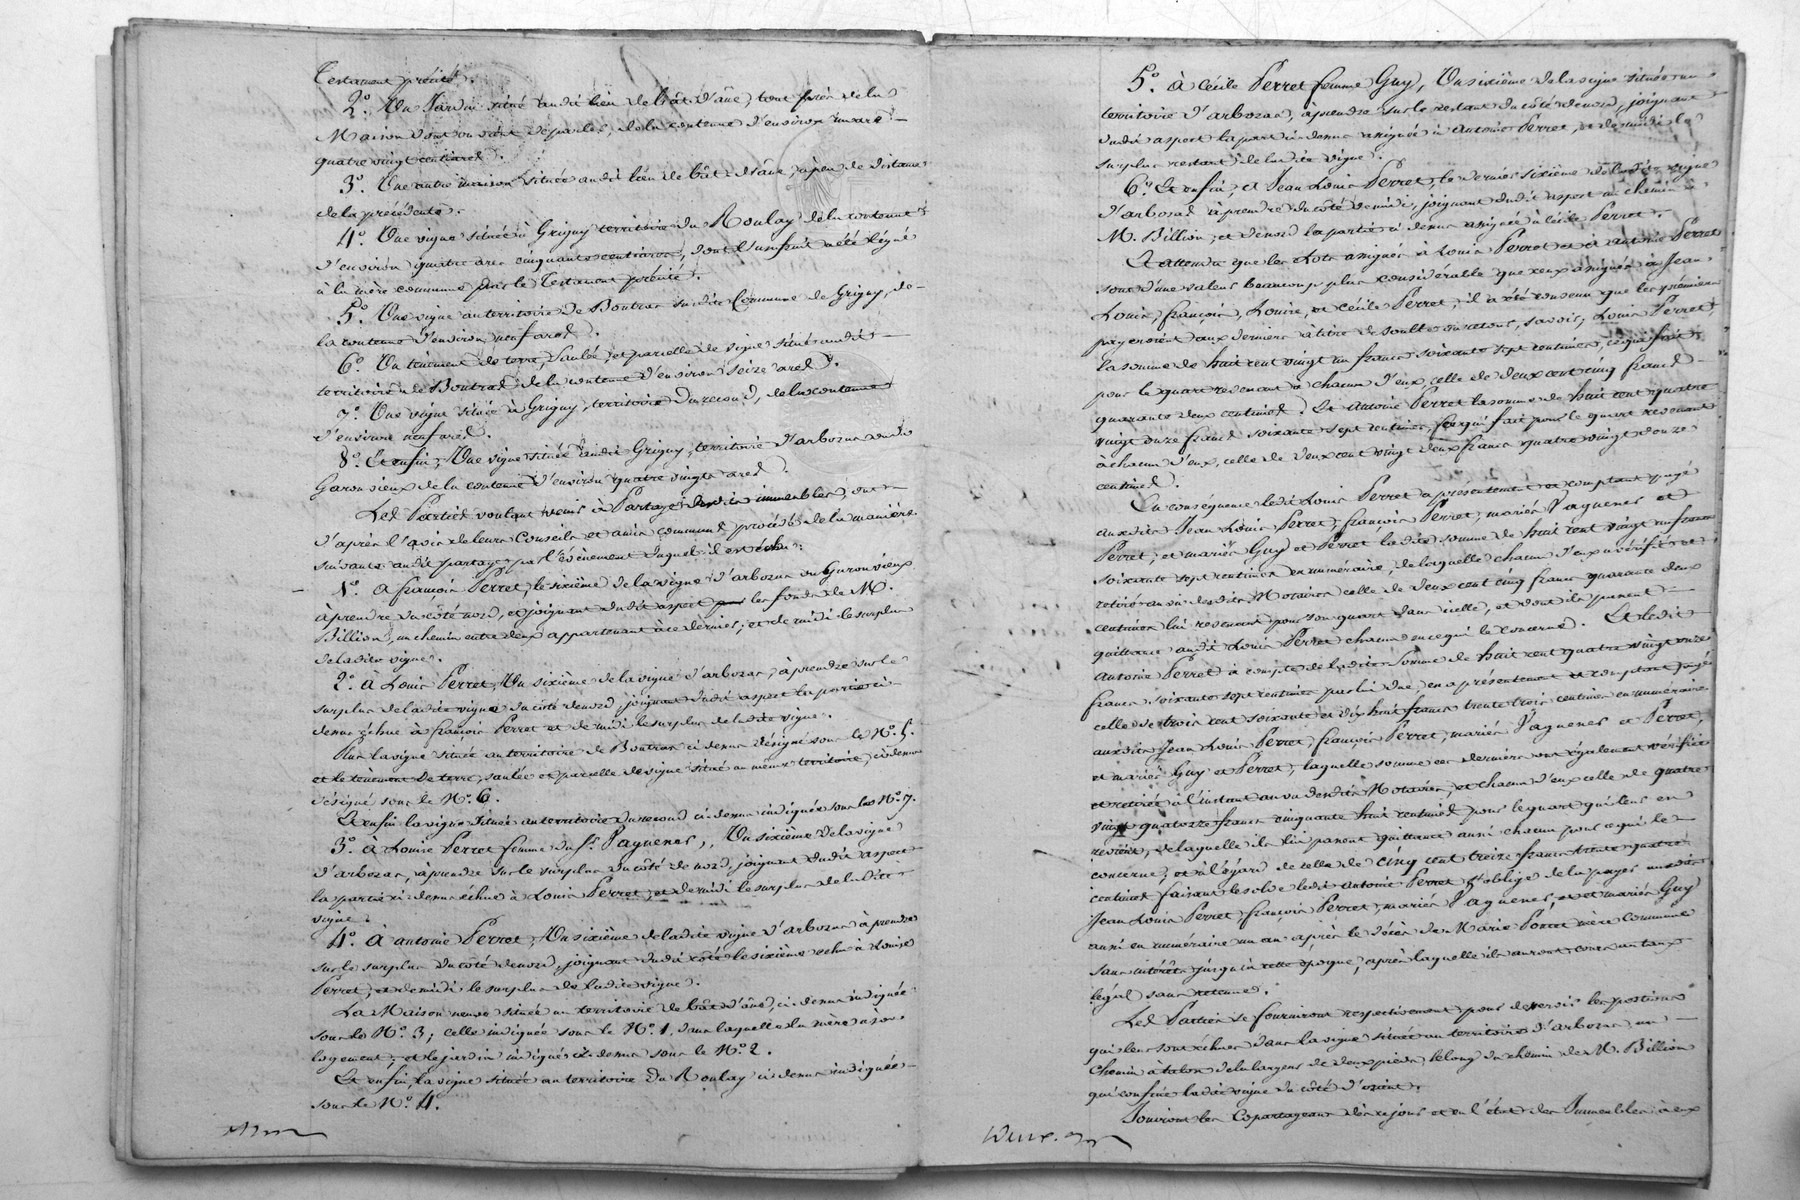 Testament précité.
2.° Un Jardin situé audit lieu de bât-d'âne, tout près de la
Maison dont on vient de parler, de la contenue d'environ un are
quatre vingt centiares.
3.° Une autre maison située audit lieu de bât-d'âne, à peu de distance
de la précédente.
4.° Une vigne située à Grigny territoire du Roulay de la contenue
d'environ quatre ares cinquante centiares, dont l'usufruit a été légué
à la mère commune par le Testament précité.
5.° Une vigne au territoire de Boutras susdite Commune de Grigny, de
la contenue d'environ neuf ares.
6.° Un tènement de terre, saulée, et parcelle de vigne situé audit
territoire de Boutras de la contenue d'environ seize ares.
7.° Une vigne située à Grigny, territoire du recoud, de la contenue
d'environ neuf ares.
8.° Et enfin, Une vigne située audit Grigny, territoire d'arboras ou du
Garon vieux de la contenue d'environ quatre vingts ares.
Les Parties voulant venir à Partage desdits immeubles, ont
d'après l'avis de leurs Conseils et amis communs procédé de la manière
suivante audit partage par l'événement duquel il est échu:
1.° A françois Perret, le sixième de la vigne d'arboras ou Garon vieux
à prendre du côté nord, et joignant dudit aspect les fonds de M.
Billion, un chemin entre deux appartenant à ce dernier, et de midi le surplus
de ladite vigne.
2.° à Louis Perret, Un sixième de la vigne d'arboras, à prendre sur le
surplus de ladite vigne du côté de nord, joignant dudit aspect la portion ci-
dessus échue à françois Perret et de midi le surplus de ladite vigne.
Plus la vigne située au territoire de Boutras ci dessus désigné sous le N.° 5.
et le tènement de terre, saulée et parcelle de vigne situé au même territoire, ci dessus
désigné sous le N.° 6.
Et enfin la vigne située au territoire du recoud ci dessus indiquée sous le N.° 7.
3.° à Louise Perret femme du S.r Paquenes, Un sixième de la vigne
d'arboras, à prendre sur le surplus du côté de nord, joignant dudit aspect
la partie ci dessus échue à Louis Perret, et de midi le surplus de ladite
vigne.
4.° à antoine Perret, Un sixième de ladite vigne d'arboras à prendre
sur le surplus du côté de nord, joignant dudit côté le sixième échu à Louise
Perret, et de midi le surplus de ladite vigne.
La Maison neuve située au territoire de bât-d'âne, ci-dessus indiquée
sous le N.° 3, celle indiquée sous le N.° 1, dans laquelle la mère a son
logement, et le jardin indiqué ci-dessus sous le N.° 2.
Et enfin la vigne située au territoire du Roulay ci dessus indiquée
sous le N.° 4.
5.° à Cécile Perret femme Guy, Un sixième de la vigne située au
territoire d'arboras, à prendre sur le restant du côté de nord, joignant
dudit aspect la partie ci-dessus assignée à antoine Perret, et de midi le
surplus restant de ladite vigne.
6.° Et enfin, à Jean Louis Perret, le dernier sixième de ladite vigne
d'arboras à prendre du côté de midi, joignant dudit aspect un chemin à
M. Billion, et de nord la partie ci dessus assignée à Cécile Perret.
Et attendu que les Lots assignés à Louis Perret et à antoine Perret
sont d'une valeur beaucoup plus considérable que ceux assignés à Jean
Louis, françois, Louise, et Cécile Perret, il a été convenu que les premiers
payeroient aux derniers à titre de soulte ou retour, savoir, Louis Perret,
la somme de huit cent vingt un francs soixante sept centimes, ce qui fait
pour le quart revenant à chacun d'eux, celle de deux cent cinq francs
quarante deux centimes. Et antoine Perret la somme de huit cent quatre
vingt onze francs soixante sept centimes, ce qui fait pour le quart revenant
à chacun d'eux, celle de deux cent vingt deux francs quatre vingt douze
centimes.
En conséquence ledit Louis Perret a présentement et comptant payé
auxdits Jean Louis Perret, françois Perret, mariés Paquenes et
Perret, et mariés Guy et Perret ladite somme de huit cent vingt un francs
soixante sept centimes en numéraire, de laquelle chacun d'eux a vérifié et
retiré au vu desdits Notaires celle de deux cent cinq francs quarante deux
centimes lui revenant pour son quart dans icelle, et dont ils passent
quittance audit Louis Perret chacun en ce qui le concerne. Et ledit
antoine Perret à compte de ladite somme de huit cent quatre vingt onze
francs soixante sept centimes par lui due, en a présentement et comptant payé
celle de trois cent soixante et dix huit francs trente trois centimes en numéraire
auxdits Jean Louis Perret, françois Perret, mariés Paquenes et Perret,
et mariés Guy et Perret, laquelle somme ces derniers ont également vérifiée
et retirée à l'instant au vu desdits Notaires, et chacun d'eux celle de quatre
vingt quatorze francs cinquante huit centimes pour le quart qui leur en
revient, de laquelle ils lui passent quittance aussi chacun pour ce qui le
concerne, et à l'égard de celle de cinq cent treize francs trente quatre
centimes faisant le solde ledit antoine Perret s'oblige de la payer auxdits
Jean Louis Perret, françois Perret, mariés Paquenes, et mariés Guy
aussi en numéraire un an après le décès de Marie Poncet mère commune
sans intérêts jusqu'à cette époque, après laquelle ils auront cours au taux
légal sans retenue.
Les Parties se fourniront respectivement pour desservir les portions
qui leur sont échues dans la vigne située au territoire d'arboras, un
Chemin à talon de la largeur de deux pieds, le long du chemin de M. Billion
qui confine ladite vigne du côté d'orient.
Jouiront les Copartageans dès ce jour et en l'état des Immeubles à eux